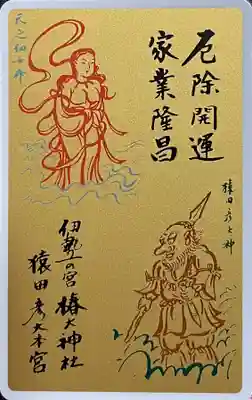 厄除開運
家業隆昌
天之鈿女命
猿田彦大神
伊勢一の宮 椿大神社
猿田彦大本宮